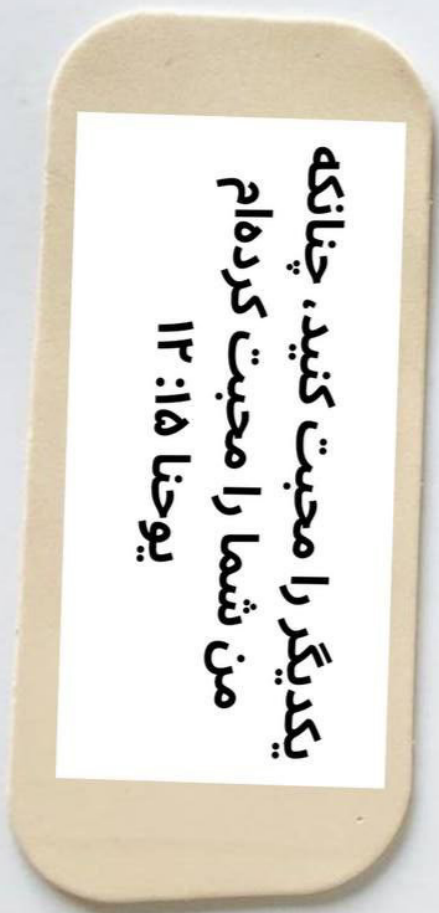 یکدیگر را محبت کنید، چنانکه
من شما را محبت کرده‌ام
یوحنا ۱۵: ۱۲